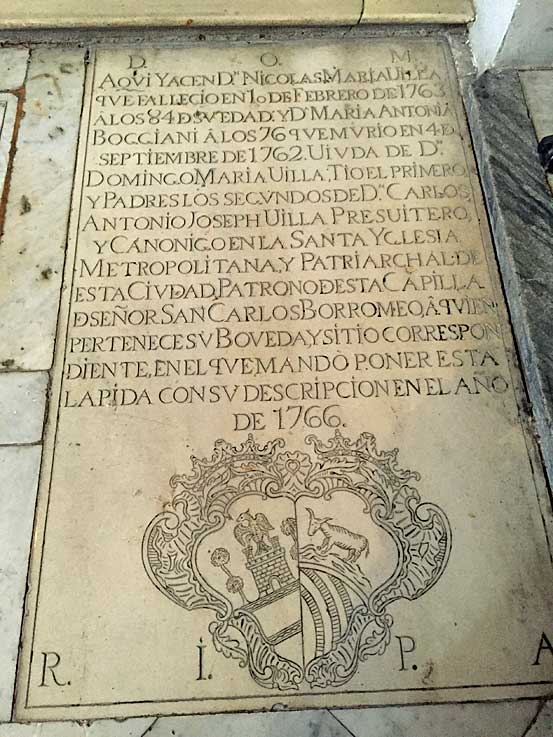 D. O. M.
AQVI YACEN Dn. NICOLAS MARIA UILLA
QVE FALLECIO EN 10 DE FEBRERO DE 1763
A LOS 84 DSVEDAD. Y Da. MARIA ANTONIA
BOGGIANI Â LOS 76 QVE MVRIO EN 4 D.
SEPTIEMBRE DE 1762. UIVDA DE Dn.
DOMINGO MARIA UILLA. TIO EL PRIMERO
Y PADRES LOS SEGVNDOS DE Dn. CARLOS
ANTONIO JOSEPH UILLA PRESUITERO,
Y CANONIGO EN LA SANTA YGLESIA
METROPOLITANA, Y PATRIARCHAL DE
ESTA CIVDAD, PATRONO DESTA CAPILLA
D SEÑOR SAN CARLOS BORROMEO, Â QVIEN
PERTENECE SV BOVEDA Y SITIO CORRESPON
DIENTE, EN EL QVE MANDO PONER ESTA
LAPIDA CON SV DESCRIPCION EN EL AÑO
DE 1766.
R. I. P. A